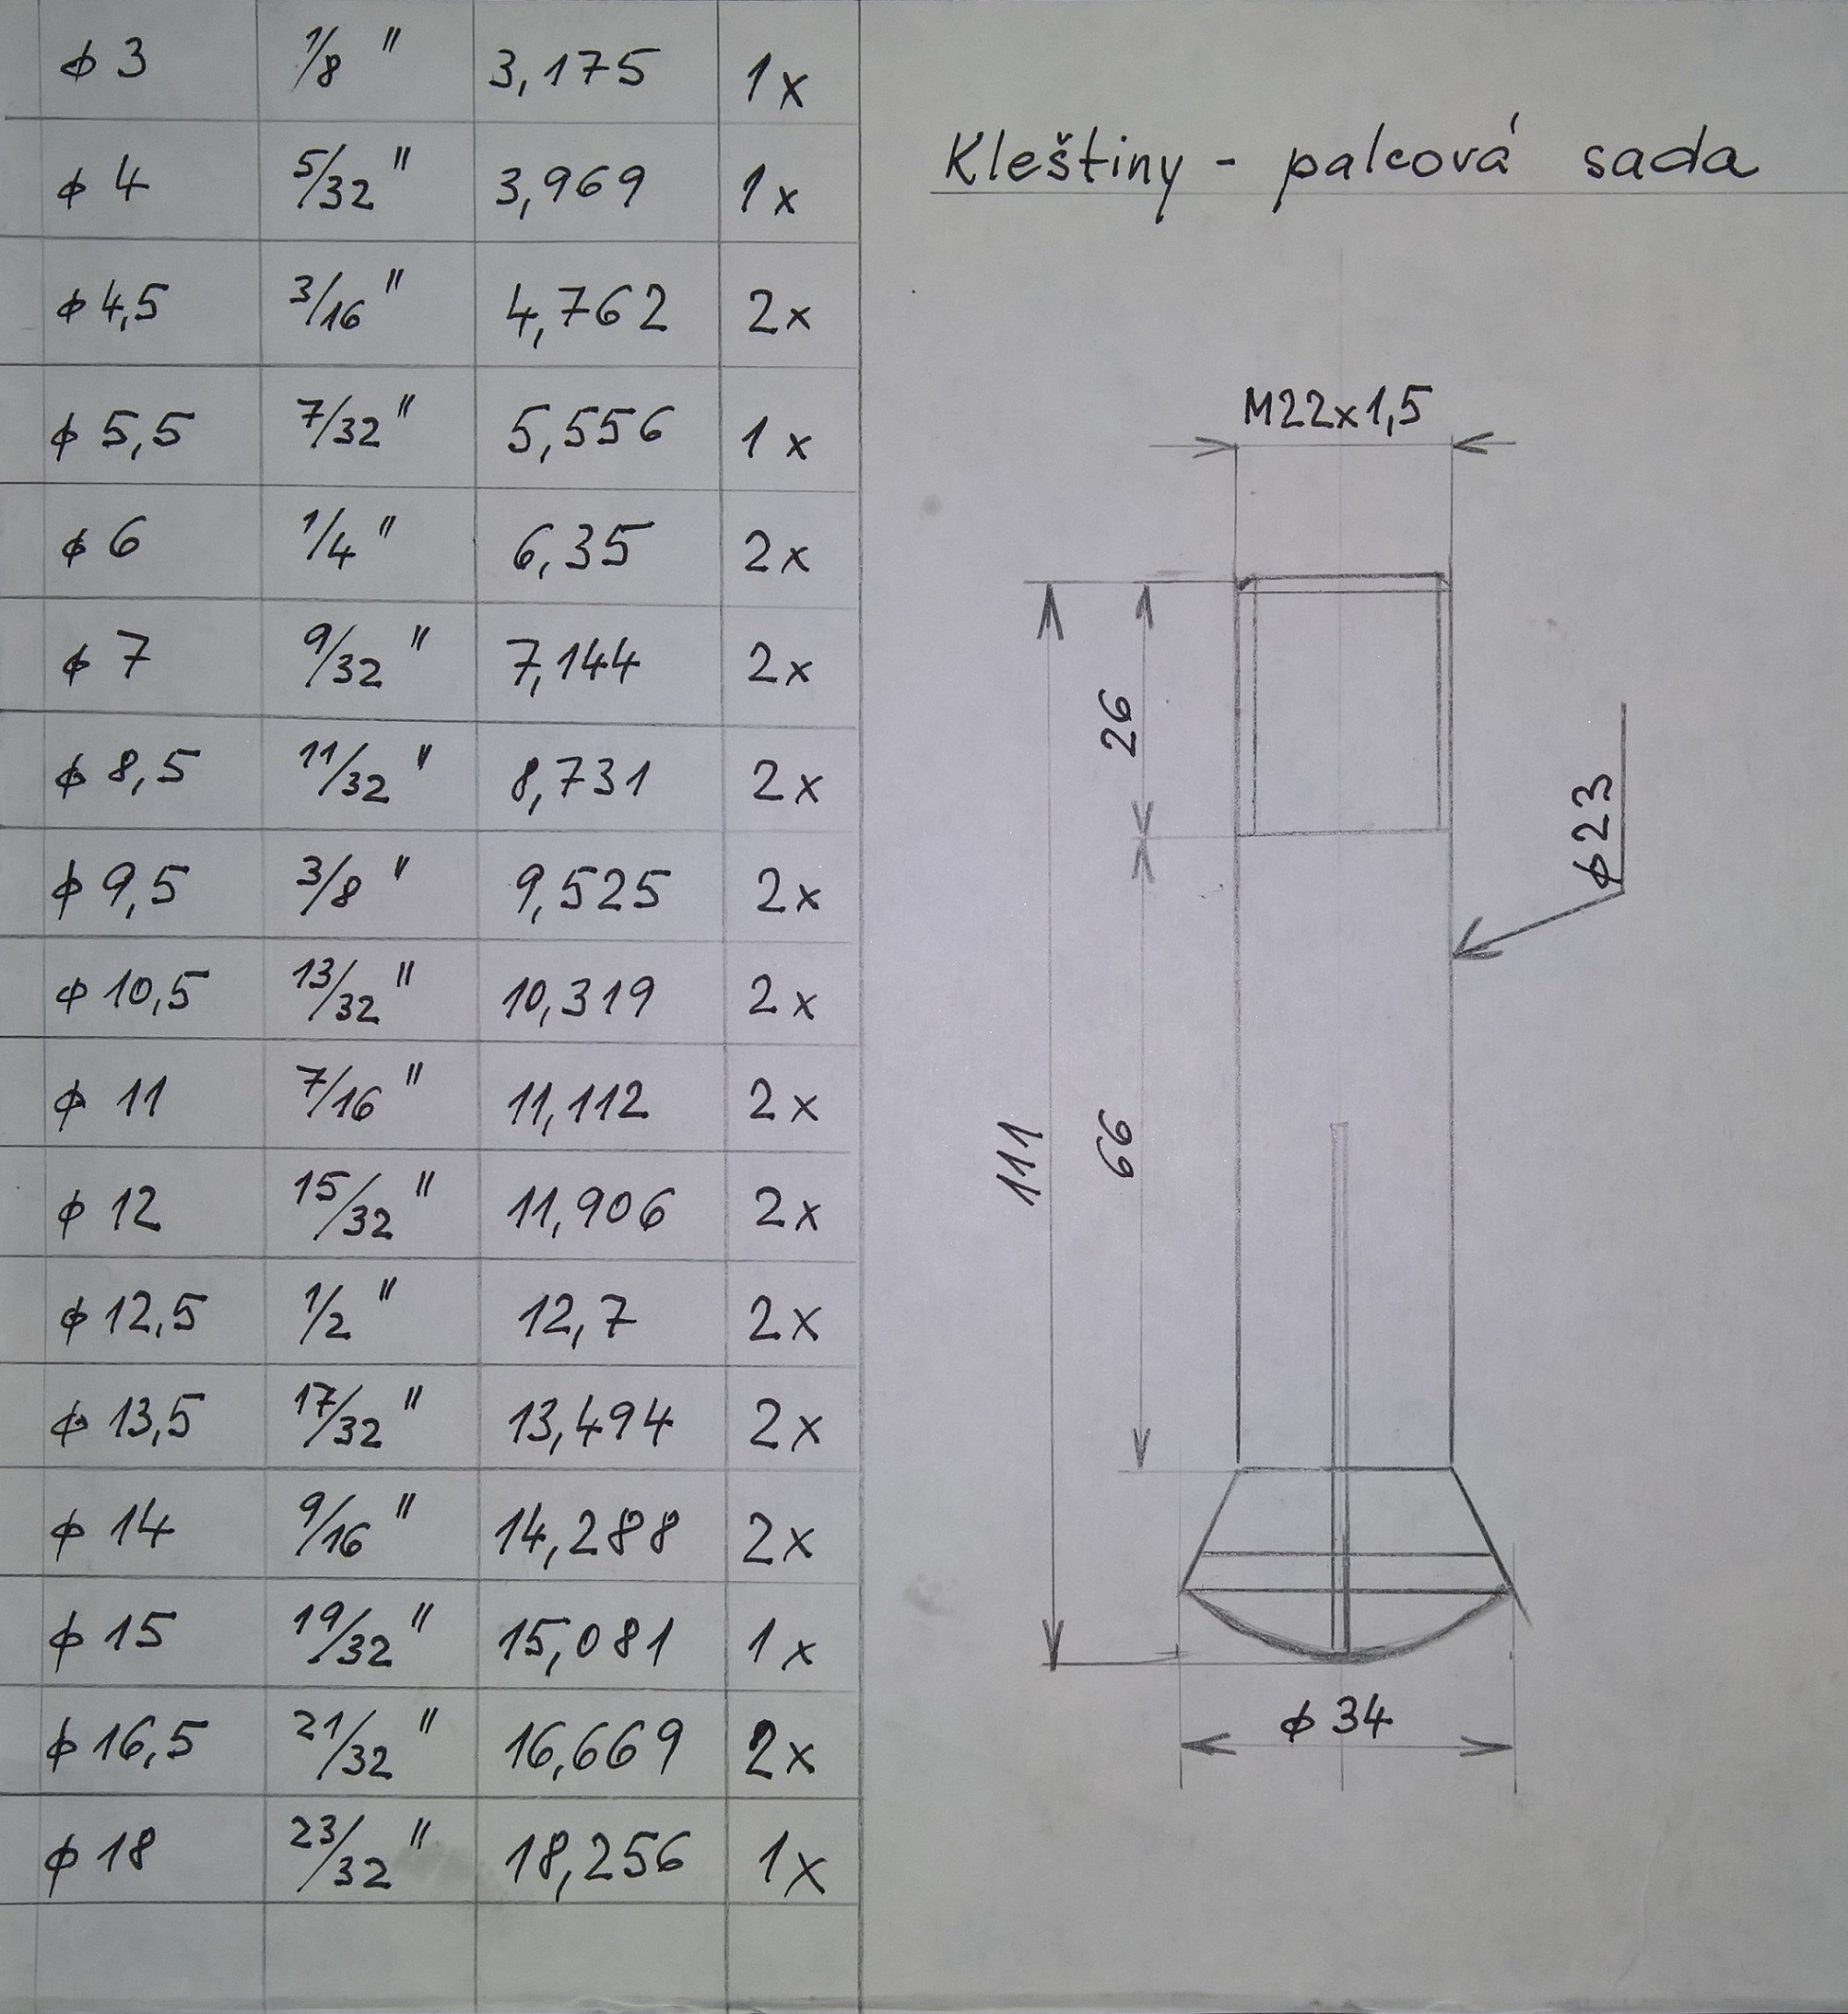 ϕ 3 1/8 " 3,175 1x
ϕ 4 5/32 " 3,969 1x
ϕ 4,5 3/16 " 4,762 2x
ϕ 5,5 7/32 " 5,556 1x
ϕ 6 1/4 " 6,35 2x
ϕ 7 9/32 " 7,144 2x
ϕ 8,5 11/32 " 8,731 2x
ϕ 9,5 3/8 " 9,525 2x
ϕ 10,5 13/32 " 10,319 2x
ϕ 11 7/16 " 11,112 2x
ϕ 12 15/32 " 11,906 2x
ϕ 12,5 1/2 " 12,7 2x
ϕ 13,5 17/32 " 13,494 2x
ϕ 14 9/16 " 14,288 2x
ϕ 15 19/32 " 15,081 1x
ϕ 16,5 21/32 " 16,669 2x
ϕ 18 23/32 " 18,256 1x
Kleštiny - palcová sada
M22x1,5
26
ϕ23
111
66
ϕ 34